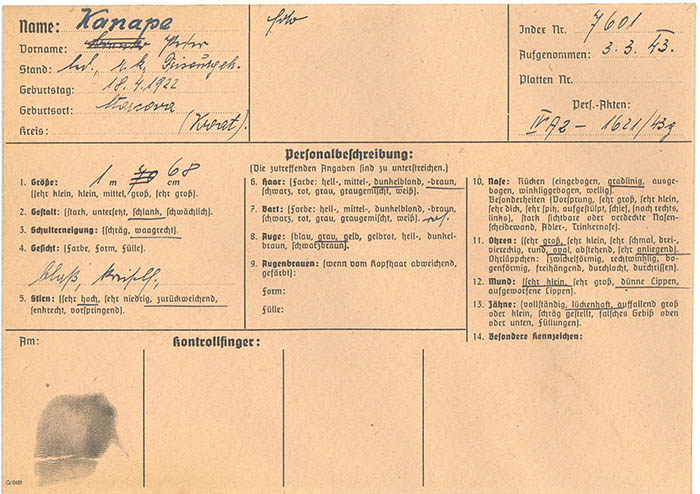 Name: Kanape
Vorname: Peter
Stand: led., r. k., Friseurgeh.
Geburtstag: 18.4.1922
Geburtsort:
Kreis: (Kroat).
Index Nr. 7601
Aufgenommen: 3. 3. 43.
Platten Nr.
Pers.-Akten:
IV A2 – 1621/43g
Personalbeschreibung:
(Die zutreffenden Angaben sind zu unterstreichen.)
1. Größe: 1 m 68 cm
(sehr klein, klein, mittel, groß, sehr groß).
2. Gestalt: (stark, untersetzt, schlank, schwächlich).
3. Schulterneigung: (schräg, waagrecht).
4. Gesicht: (Farbe, Form, Fülle).
blaß,
5. Stirn: (sehr hoch, sehr niedrig, zurückweichend,
senkrecht, vorspringend).
6. Haar: (Farbe: hell-, mittel-, dunkelblond, -braun,
schwarz, rot, grau, graugemischt, weiß).
7. Bart: (Farbe: hell-, mittel-, dunkelblond, -braun,
schwarz, rot, grau, graugemischt, weiß).
8. Auge: (blau, grau, gelb, gelbrot, hell-, dunkel-
braun, schwarzbraun).
9. Augenbrauen: (wenn vom Kopfhaar abweichend,
gefärbt):
Form:
Fülle:
10. Nase: Rücken (eingebogen, gradlinig, ausge-
bogen, winkliggebogen, wellig).
Besonderheiten (Vorsprung, sehr groß, sehr klein,
sehr dick, sehr spitz, aufgestülpt, schief, (nach rechts,
links), stark sichtbare oder verdeckte Nasen-
scheidewand, Adler-, Trinkernase).
11. Ohren: (sehr groß, sehr klein, sehr schmal, drei-,
viereckig, rund, oval, abstehend, sehr anliegend).
Ohrläppchen: (zwickelförmig, rechtwinklig, bo-
genförmig, freihängend, durchlocht, durchrissen).
12. Mund: (sehr klein, sehr groß, dünne Lippen,
aufgeworfene Lippen).
13. Zähne: (vollständig, lückenhaft, auffallend groß
oder klein, schräg gestellt, falsches Gebiß oben
oder unten, Füllungen).
14. Besondere Kennzeichen:
Am:
Kontrollfinger: